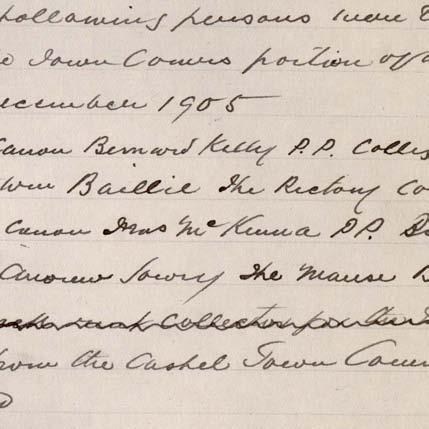 following persons were
Town Comrs portion of
ecember 1905
Canon Bernard Kelly P.P. Colles
Baillie The Rectory Co
Canon Thos McKenna P.P.
Andrew Lowry The Manse B
Collection for the
from the Cashel Town Comr